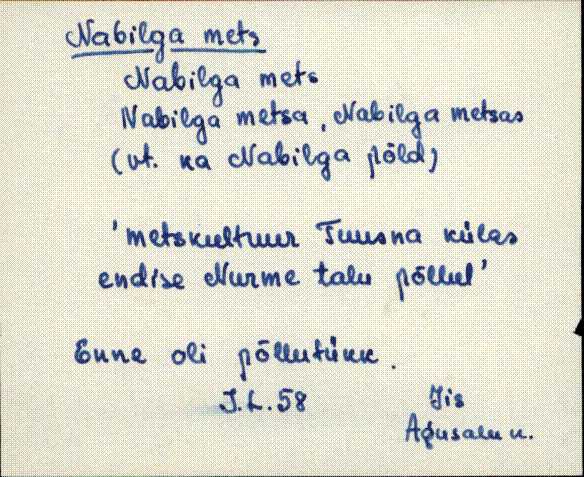 Nabilga mets
Nabilga mets
Nabilga metsa, Nabilga metsas
(vt. ka Nabilga põld)
'metskultuur Tuusna külas
endise Nurme talu põllul'
Enne oli põllutükk.
J.L. 58 Iis
Apusalu k.